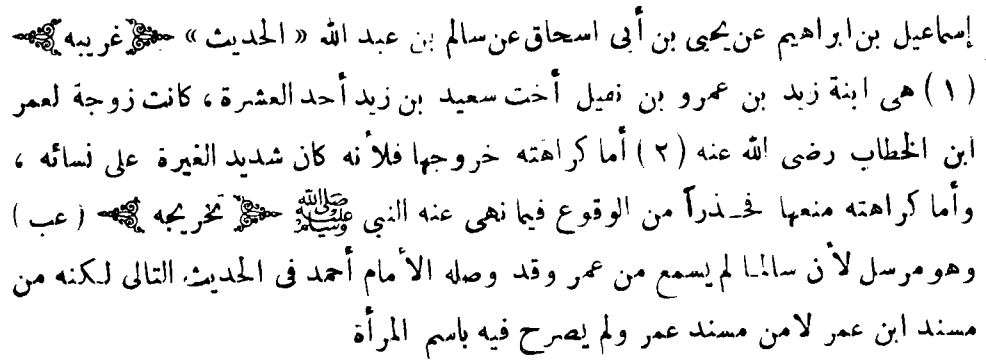 إسماعيل بن ابراهيم عن يحيى بن أبى اسحاق عن سالم بن عبد الله « الحديث » غريبه
(١) هى ابنة زيد بن عمرو بن نفيل أخت سعيد بن زيد أحد العشرة ، كانت زوجة لعمر
ابن الخطاب رضى الله عنه (٢) أما كراهته خروجها فلأنه كان شديد الغيرة على نسائه ،
وأما كراهته منعها فحذراً من الوقوع فيما نهى عنه النبى ﷺ تخريجه (عب)
وهو مرسل لأن سالما لم يسمع من عمر وقد وصله الأمام أحمد فى الحديث التالى لكنه من
مسند ابن عمر لامن مسند عمر ولم يصرح فيه باسم المرأة